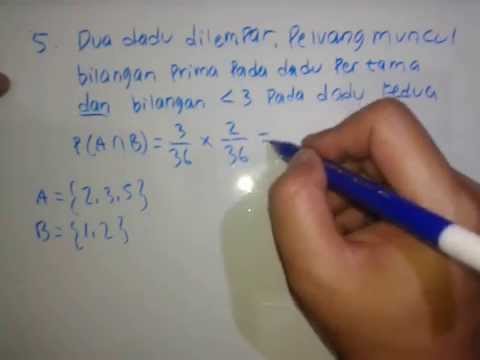 5. Dua dadu dilempar, Peluang muncul
bilangan Prima Pada dadu Pertama
dan bilangan < 3 Pada dadu kedua
P(A∩B) = 3/36 × 2/36 =
A = {2,3,5}
B = {1,2}